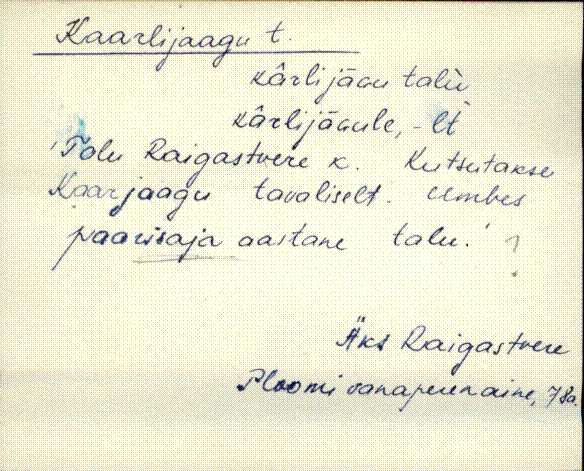 Kaarlijaagu t.
kârlijāGu talù
kârlijāGule, -lt
'Talu Raigastvere k. Kutsutakse
Kaarjaagu tavaliselt. Umbes
paarisaja aastane talu.' ?
Äks Raigastvere
Ploomi vanaperenaine, 78a.